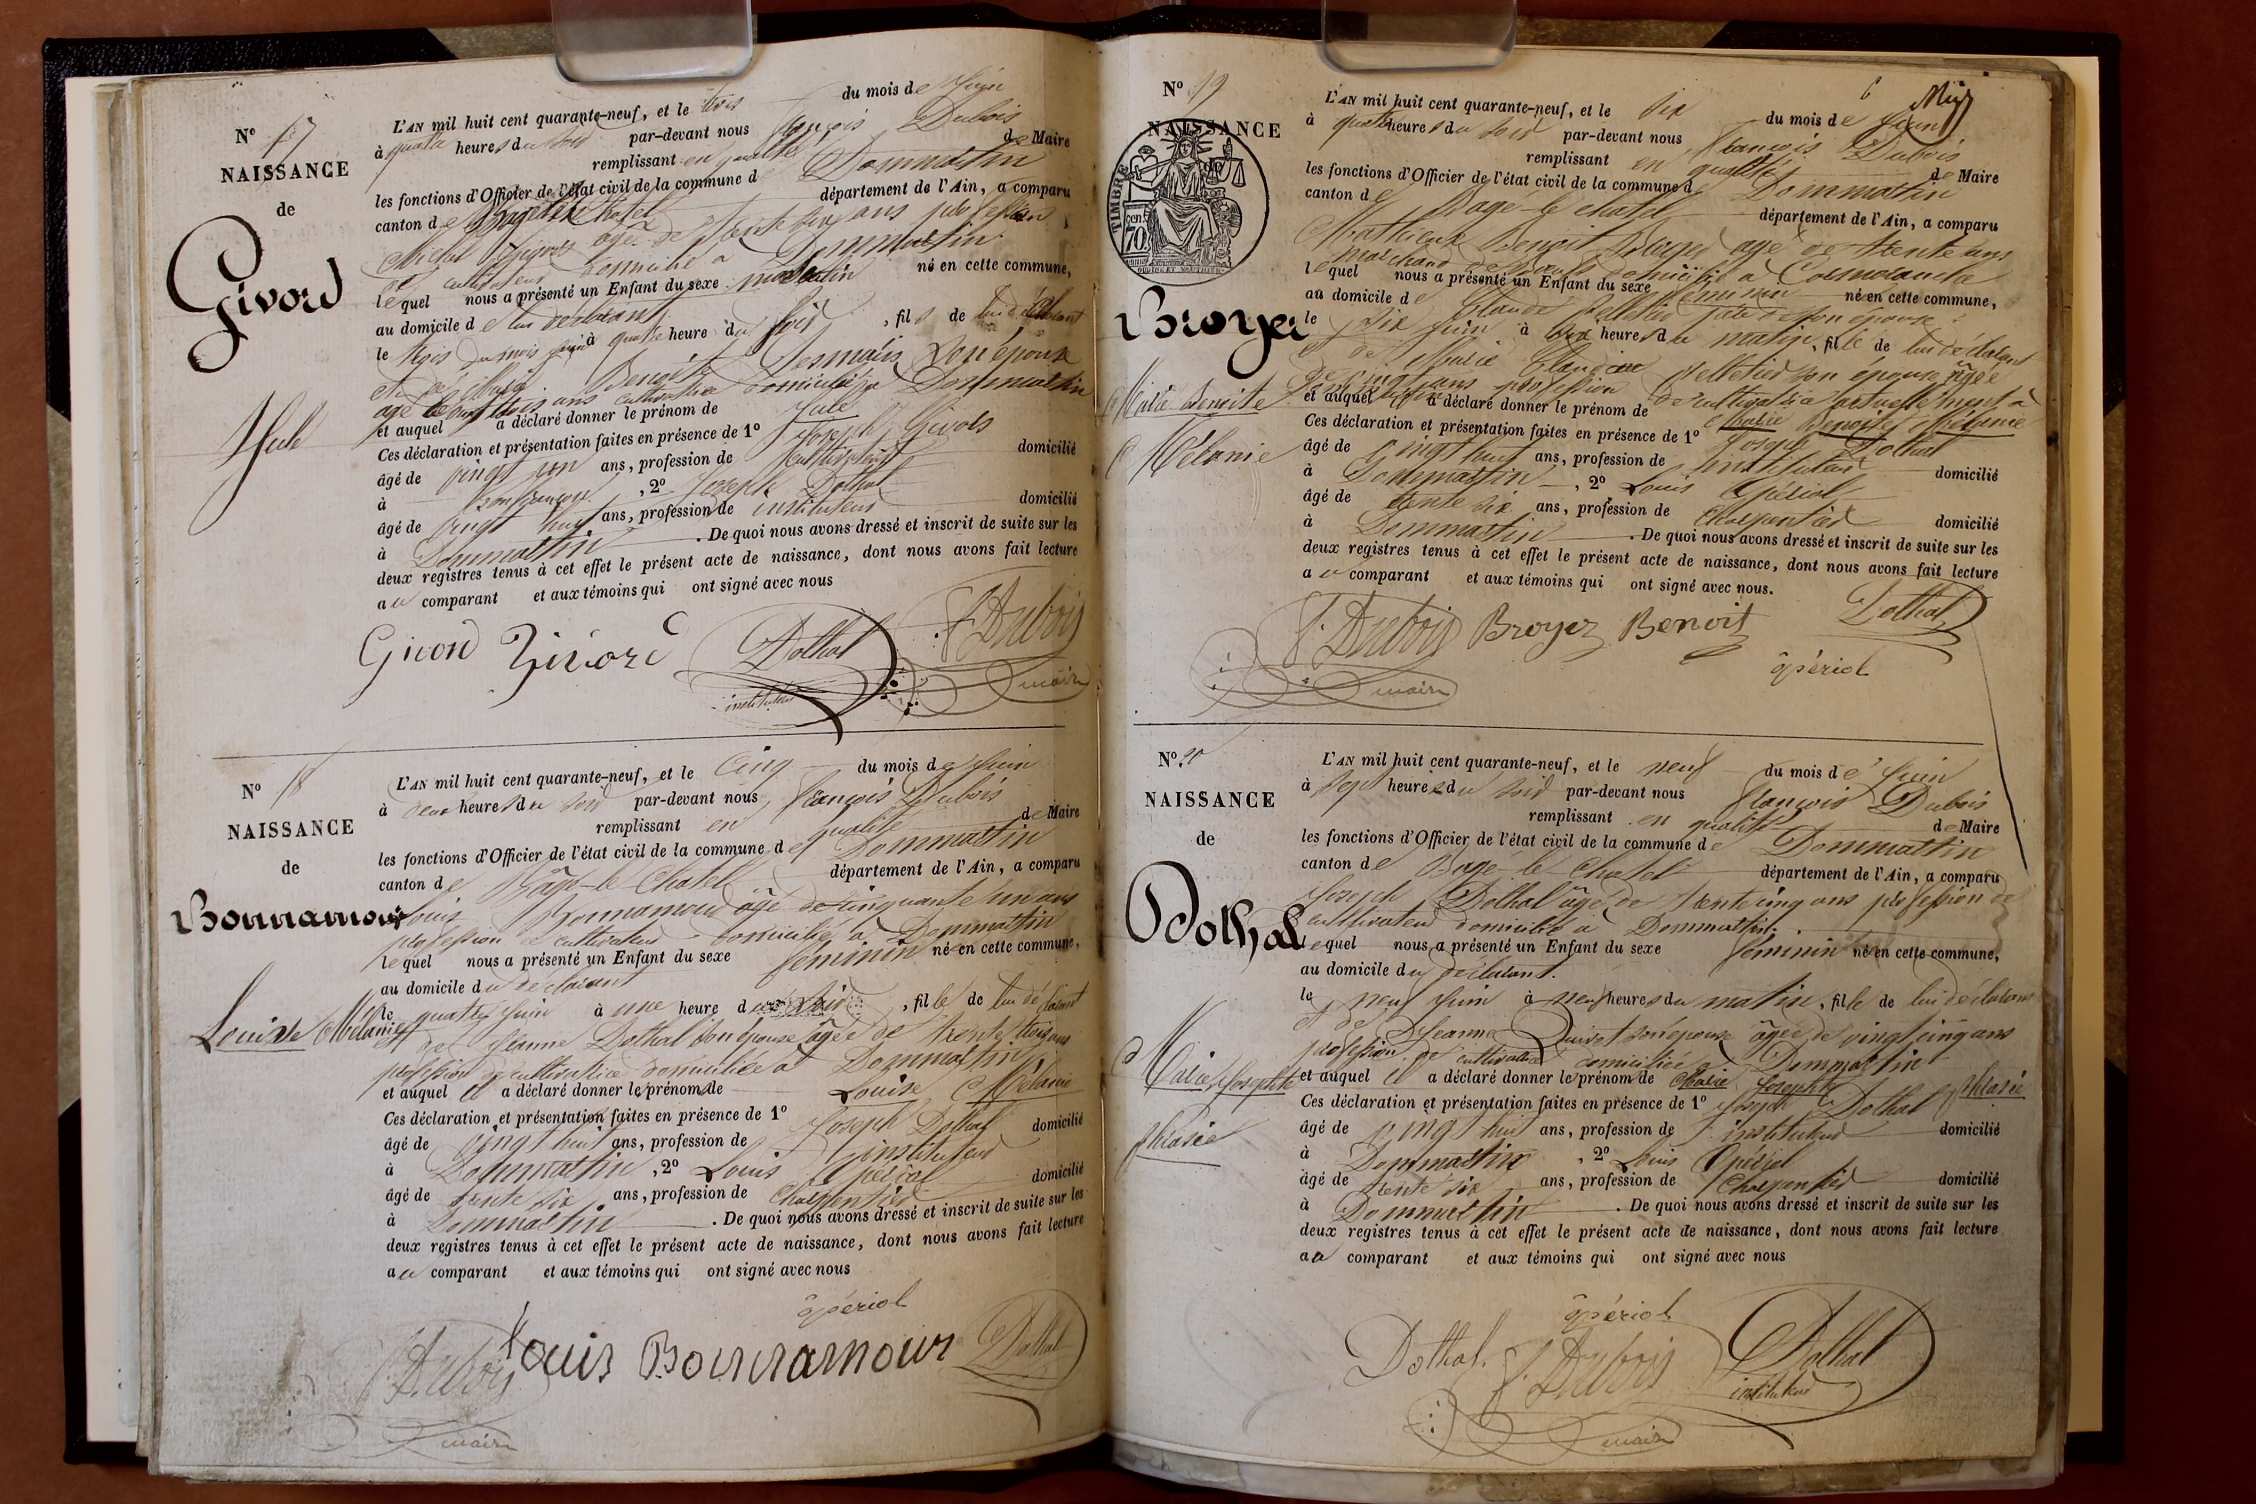 N° 17
NAISSANCE
de
Givord
Jule
L'AN mil huit cent quarante-neuf, et le trois du mois de Juin
à quatre heures du soir par-devant nous François Dubois
remplissant en qualité de Maire
les fonctions d'Officier de l'état civil de la commune de Dommartin
canton de Bagé le Chatel département de l'Ain, a comparu
Michel âgé de trente six ans profession
de cultivateur domicilié à Dommartin
lequel nous a présenté un Enfant du sexe masculin né en cette commune,
au domicile de lui déclarant
le trois du mois juin à quatre heure du soir, fils de lui déclarant
et de Marie Benoite Desmaris son épouse
âgé de vingt trois ans cultivatrice domiciliée à Dommartin
et auquel a déclaré donner le prénom de Jule
Ces déclaration et présentation faites en présence de 1° Joseph Givord
âgé de vingt un ans, profession de cultivateur domicilié
à , 2° Joseph Dothal
âgé de vingt huit ans, profession de instituteur domicilié
à Dommartin . De quoi nous avons dressé et inscrit de suite sur les
deux registres tenus à cet effet le présent acte de naissance, dont nous avons fait lecture
au comparant et aux témoins qui ont signé avec nous
Givord Givord Dothal F. Dubois
instituteur maire
N° 18
NAISSANCE
de
Bonnamour
Louise Mélanie
L'AN mil huit cent quarante-neuf, et le cinq du mois de Juin
à deux heures du soir par-devant nous François Dubois
remplissant en qualité de Maire
les fonctions d'Officier de l'état civil de la commune de Dommartin
canton de Bâgé-le Chatel département de l'Ain, a comparu
Louis Bonnamour âgé de cinquante un ans
profession de cultivateur domicilié à Dommartin
lequel nous a présenté un Enfant du sexe féminin né en cette commune,
au domicile du déclarant
le quatre Juin à une heure du soir, fille de lui déclarant
et de Jeanne Dothal son épouse âgée de trente trois ans
profession de cultivatrice domiciliée à Dommartin
et auquel il a déclaré donner le prénom de Louise Mélanie
Ces déclaration et présentation faites en présence de 1° Joseph Dothal
âgé de vingt huit ans, profession de instituteur domicilié
à Dommartin, 2° Louis Apériol
âgé de trente six ans, profession de charpentier domicilié
à Dommartin . De quoi nous avons dressé et inscrit de suite sur les
deux registres tenus à cet effet le présent acte de naissance, dont nous avons fait lecture
au comparant et aux témoins qui ont signé avec nous
apériol
F. Dubois Louis Bonnamour Dothal
maire
6
N° 19
NAISSANCE
TIMBRE
70 cen.
Broyer
Marie Benoite
Mélanie
L'AN mil huit cent quarante-neuf, et le six du mois de Juin
à quatre heures du soir par-devant nous François Dubois
remplissant en qualité de Maire
les fonctions d'Officier de l'état civil de la commune de Dommartin
canton de Bagé-le chatel département de l'Ain, a comparu
Mathieux Benoit Broyer âgé de trente ans
marchand domicilié à Cormoranche
lequel nous a présenté un Enfant du sexe féminin né en cette commune,
au domicile de Claude Pelletier père de son épouse
le six Juin à six heures du matin, fille de lui déclarant
et de Marie Claudine Pelletier son épouse âgée
de vingt ans profession de cultivatrice actuellement à
et auquel a déclaré donner le prénom de Marie Benoite Mélanie
Ces déclaration et présentation faites en présence de 1° Joseph Dothal
âgé de vingt huit ans, profession de instituteur domicilié
à Dommartin, 2° Louis Apériol
âgé de trente six ans, profession de charpentier domicilié
à Dommartin . De quoi nous avons dressé et inscrit de suite sur les
deux registres tenus à cet effet le présent acte de naissance, dont nous avons fait lecture
au comparant et aux témoins qui ont signé avec nous.
F. Dubois Broyer Benoit Dothal
maire apériol
N° 20
NAISSANCE
de
Dothal
Marie Josephte
phlasie
L'AN mil huit cent quarante-neuf, et le neuf du mois de Juin
à sept heures du soir par-devant nous François Dubois
remplissant en qualité de Maire
les fonctions d'Officier de l'état civil de la commune de Dommartin
canton de Bagé le chatel département de l'Ain, a comparu
Joseph Dothal âgé de trente cinq ans profession de
cultivateur domicilié à Dommartin
lequel nous a présenté un Enfant du sexe féminin né en cette commune,
au domicile du déclarant.
le neuf Juin à neuf heures du matin, fille de lui déclarant
et de Jeanne son épouse âgée de vingt cinq ans
profession de cultivatrice domiciliée à Dommartin
et auquel il a déclaré donner le prénom de Marie Josephte phlasie
Ces déclaration et présentation faites en présence de 1° Joseph Dothal
âgé de vingt huit ans, profession de instituteur domicilié
à Dommartin, 2° Louis Apériol
âgé de trente six ans, profession de Charpentier domicilié
à Dommartin . De quoi nous avons dressé et inscrit de suite sur les
deux registres tenus à cet effet le présent acte de naissance, dont nous avons fait lecture
au comparant et aux témoins qui ont signé avec nous
apériol
Dothal. F. Dubois Dothal
maire instituteur